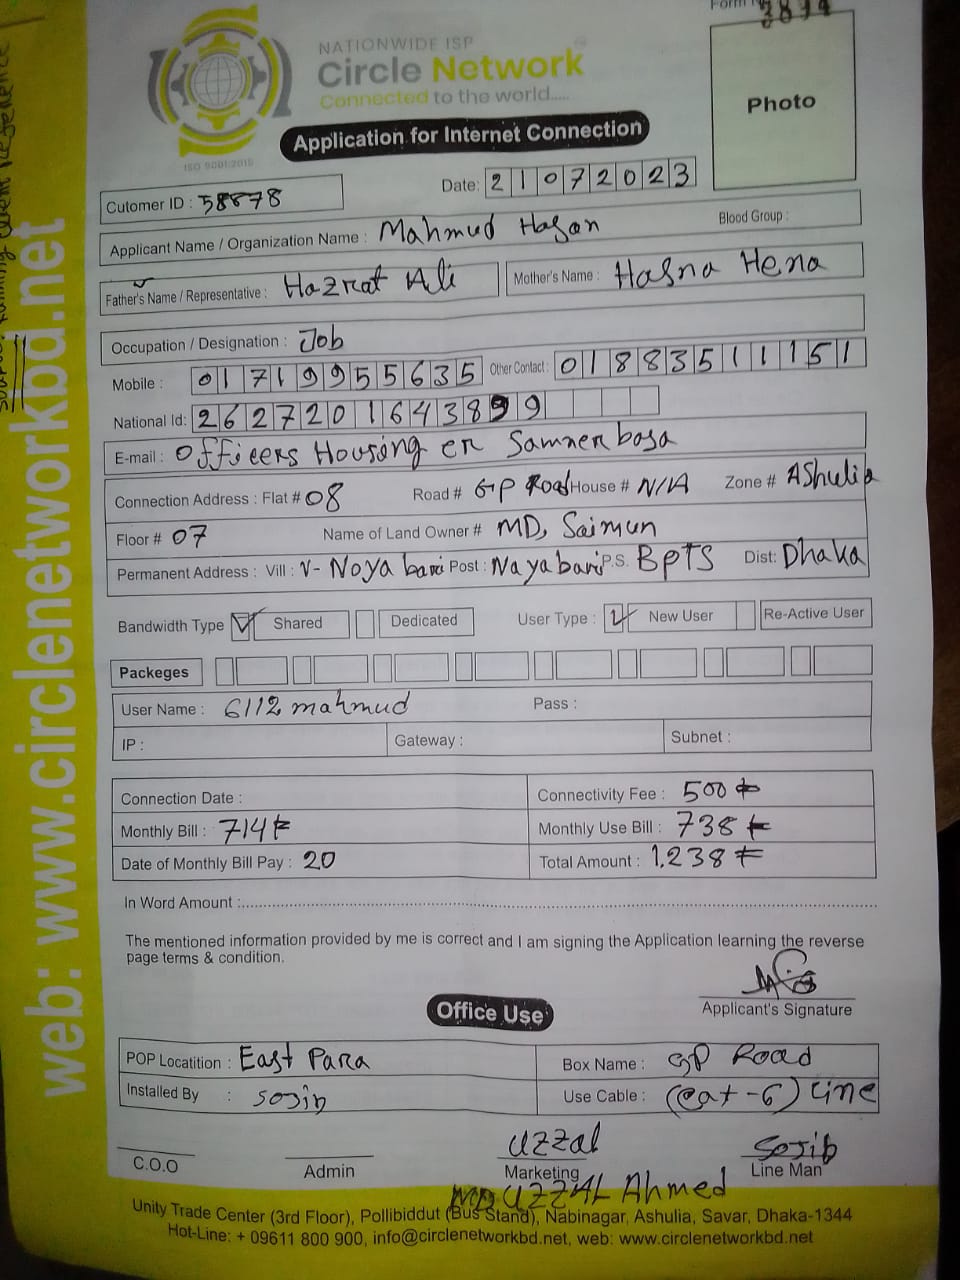 Form No 3894
NATIONWIDE ISP
Circle Network
Connected to the world.....
ISO 9001:2015
Photo
Application for Internet Connection
Date: 21072023
Cutomer ID : 58878
Applicant Name / Organization Name : Mahmud Hasan Blood Group :
Father's Name / Representative : Hazrat Ali Mother's Name : Hasna Hena
Occupation / Designation : Job
Mobile : 01719955635 Other Contact : 01883511151
National Id: 2627201643899
E-mail : Officers Housing er Samner basa
Connection Address : Flat # 08 Road # GP Road House # N/A Zone # AShulia
Floor # 07 Name of Land Owner # MD, Saimun
Permanent Address : Vill : V- Noya bari Post : Nayabari P.S. BpTS Dist: Dhaka
Bandwidth Type Shared Dedicated User Type : New User Re-Active User
Packeges
User Name : 6112 mahmud Pass :
IP : Gateway : Subnet :
Connection Date : Connectivity Fee : 500
Monthly Bill : 714 Monthly Use Bill : 738
Date of Monthly Bill Pay : 20 Total Amount : 1,238
In Word Amount :
The mentioned information provided by me is correct and I am signing the Application learning the reverse
page terms & condition.
Applicant's Signature
Office Use
POP Locatition : East Para Box Name : GP Road
Installed By : sojib Use Cable : (Cat-6) Line
UZZal Sojib
C.O.O Admin Marketing Line Man
MD UZZAL Ahmed
Unity Trade Center (3rd Floor), Pollibiddut (Bus Stand), Nabinagar, Ashulia, Savar, Dhaka-1344
Hot-Line: + 09611 800 900, info@circlenetworkbd.net, web: www.circlenetworkbd.net
web: www.circlenetworkbd.net